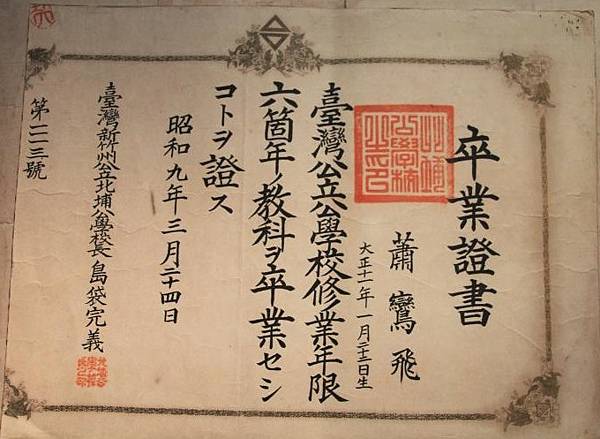 卒業證書
蕭鸞飛
大正十一年一月二十三日生
臺灣公立公學校修業年限
六箇年ノ教科ヲ卒業セシ
コトヲ證ス
昭和九年三月二十四日
臺灣新竹州公立北埔公學校長 島袋完義
第二一三號
北埔公學校之印